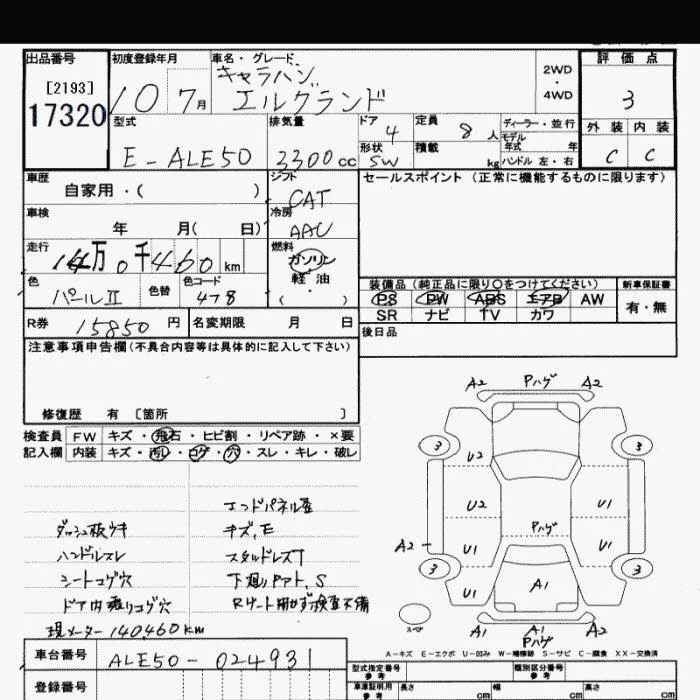 出品番号 初度登録年月 車名・グレード 評価点
[2193] キャラバン 2WD
17320 10 7月 エルグランド 4WD 3
型式 排気量 ドア 4 定員 8人 ディーラー・並行 外装 内装
モデル年式 年
E-ALE50 3300cc 形状 SW 積載 kg ハンドル 左・右 C C
車歴 自家用・( ) シフト CAT セールスポイント (正常に機能するものに限ります)
車検 年 月( 日) 冷房 AAC
走行 14万0千460km 燃料 ガソリン
軽・油
( )
色 パールⅡ 色替 色コード 478
装備品 (純正品に限り○をつけてください) 新車保証書
PS PW ABS エアB AW 有・無
SR ナビ TV カワ
R券 15850円 名変期限 月 日 後日品
注意事項申告欄(不具合内容等は具体的に記入して下さい)
修復歴 有 〔箇所 〕
検査員 FW キズ・飛石・ヒビ割・リペア跡・×要
記入欄 内装 キズ・汚レ・コゲ・穴・スレ・キレ・破レ
A2 Pハゲ A2
3 3
U2
U2 U1
Pハゲ
A2 U1 U1
3 3
U1 A1
スペア
A1 A1 A2
Pハゲ
エンドパネル歪
ダッシュ板ウキ キズ,E
ハンドルスレ スタルドレスT
シートコゲ穴 S
ドア内張りコゲ穴 Rゲート開かず検査不備
現メーター140460km
A-キズ E-エクボ U-凹み W-補修跡 S-サビ C-腐食 XX-交換済
車台番号 ALE50-024931
型式指定番号 参考 類別区分番号 参考
登録番号 車庫証明用 参考 長さ cm 幅 cm 高さ cm